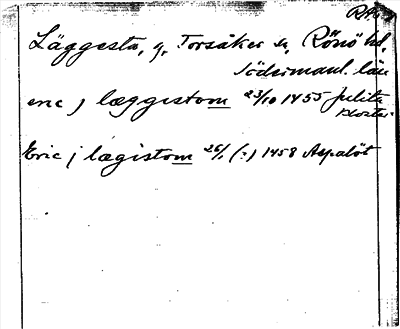 RA
Läggesta, g, Torsåker sn, Rönö hd,
Södermanl. län
eric j læggistom 23/10 1455 Julita
kloster
Eric j lægistom 26/1 (?) 1458 Aspalöt